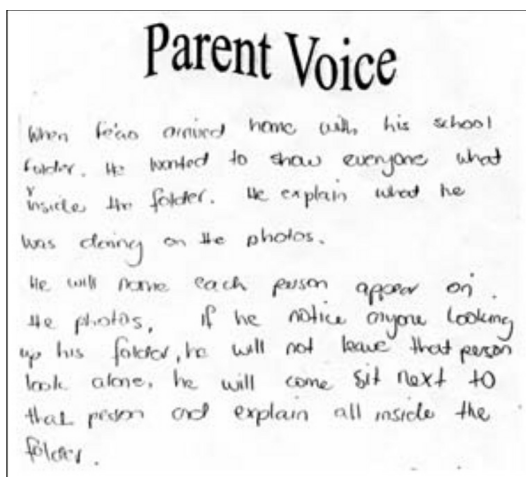 Parent Voice
When arrived home with his school
folder. He wanted to show everyone what
inside the folder. He explain what he
was doing on the photos.
He will name each person appear on
the photos, if he notice anyone looking
up his folder, he will not leave that person
look alone, he will come sit next to
that person and explain all inside the
folder.